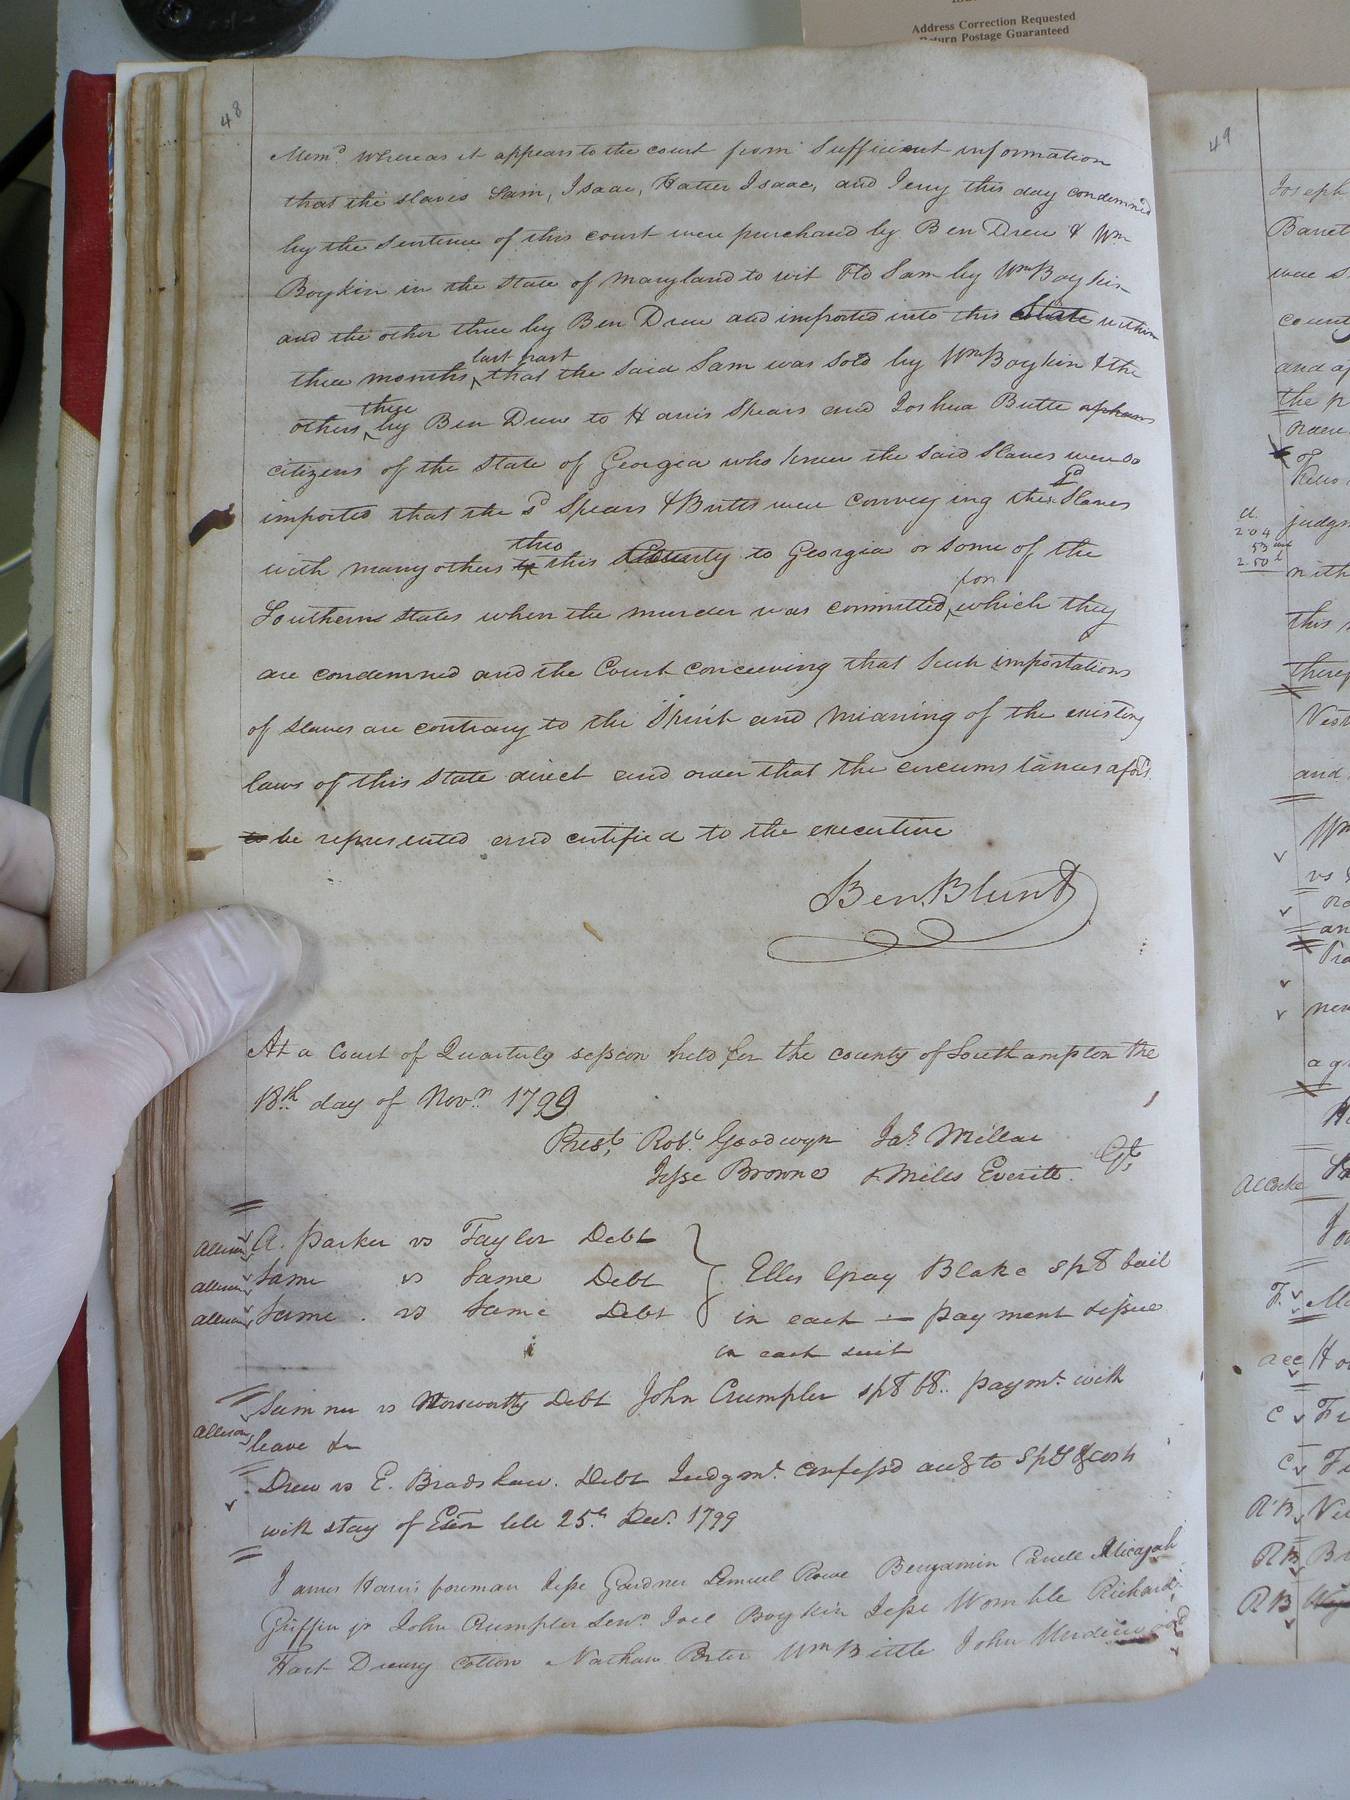 Address Correction Requested
Return Postage Guaranteed
48
Memd. Whereas it appears to the court from Sufficient information
that the slaves Sam, Isaac, Hatter Isaac, and Jerry this day condemned
by the Sentence of this court were purchased by Ben Drew & Wm
Boykin in the State of Maryland to wit Old Sam by Wm Boykin
and the other three by Ben Drew and imported into this State within
three months last past that the said Sam was sold by Wm Boykin & the
others three by Ben Drew to Harris Spears and Joshua Butts
citizens of the State of Georgia who knew the said Slaves were so
imported that the sd Spears & Butts were conveying the sd Slaves
with many others thro this County to Georgia or some of the
Southern States when the murder was committed for which they
are condemned and the Court conceiving that Such importations
of slaves are contrary to the Spirit and meaning of the existing
laws of this State direct and order that the circumstances afsd.
to be represented and certified to the executive
Ben. Blunt
At a Court of Quarterly session held for the county of Southampton the
18th day of Novr. 1799
Prest. Robt. Goodwyn Jas. Millar
Jesse Browne & Mills Everitt Gt.
Allison A. Parker vs Taylor Debt
Allison Same vs Same Debt Elles Gray Blake spl bail
Allison Same vs Same Debt in each - payment & issue
in each suit
Sumner vs Norsworthy Debt John Crumpler spl bl. paymt. with
Allison leave &c
Drew vs E. Bradshaw. Debt Judgmt. confess'd accg to Splt & costs
with stay of Exon till 25th Decr. 1799
James Harris foreman Jesse Gardner Lemuel Rowe Benjamin Micajah
Griffin jr John Crumpler Senr. Joel Boykin Jesse Womble Richard
Hart Drewry Cotton Nathan Porter Wm Bittle John
49
Joseph
Barret
was s
county
and ap
the p
order
of
judgm
204
53
2.50
with
this
there
West
and
Wm
vs
an
new
agr
A Cocke
F.
acc
C
C
RB
RB
RB